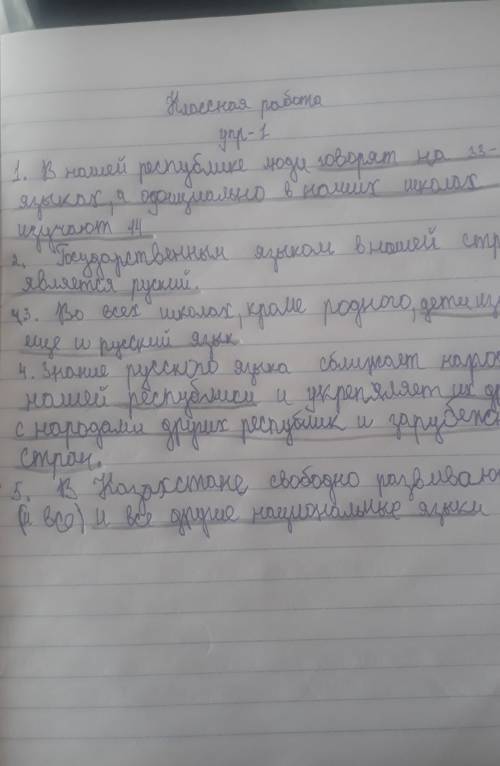 Классная работа
упр-1
1. В нашей республике люди говорят на 33-
языках, а официально в наших школах
изучают 14
2. Государственным языком в нашей стр
является руский.
3. Во всех школах, кроме родного, дети из
еще и русский язык
4. Знание русского языка сближает наро
нашей республики и укрепляет их др
с народами других республик и зарубеж
стран.
5. В Казахстане свободно развиваю
и все другие национальные языки